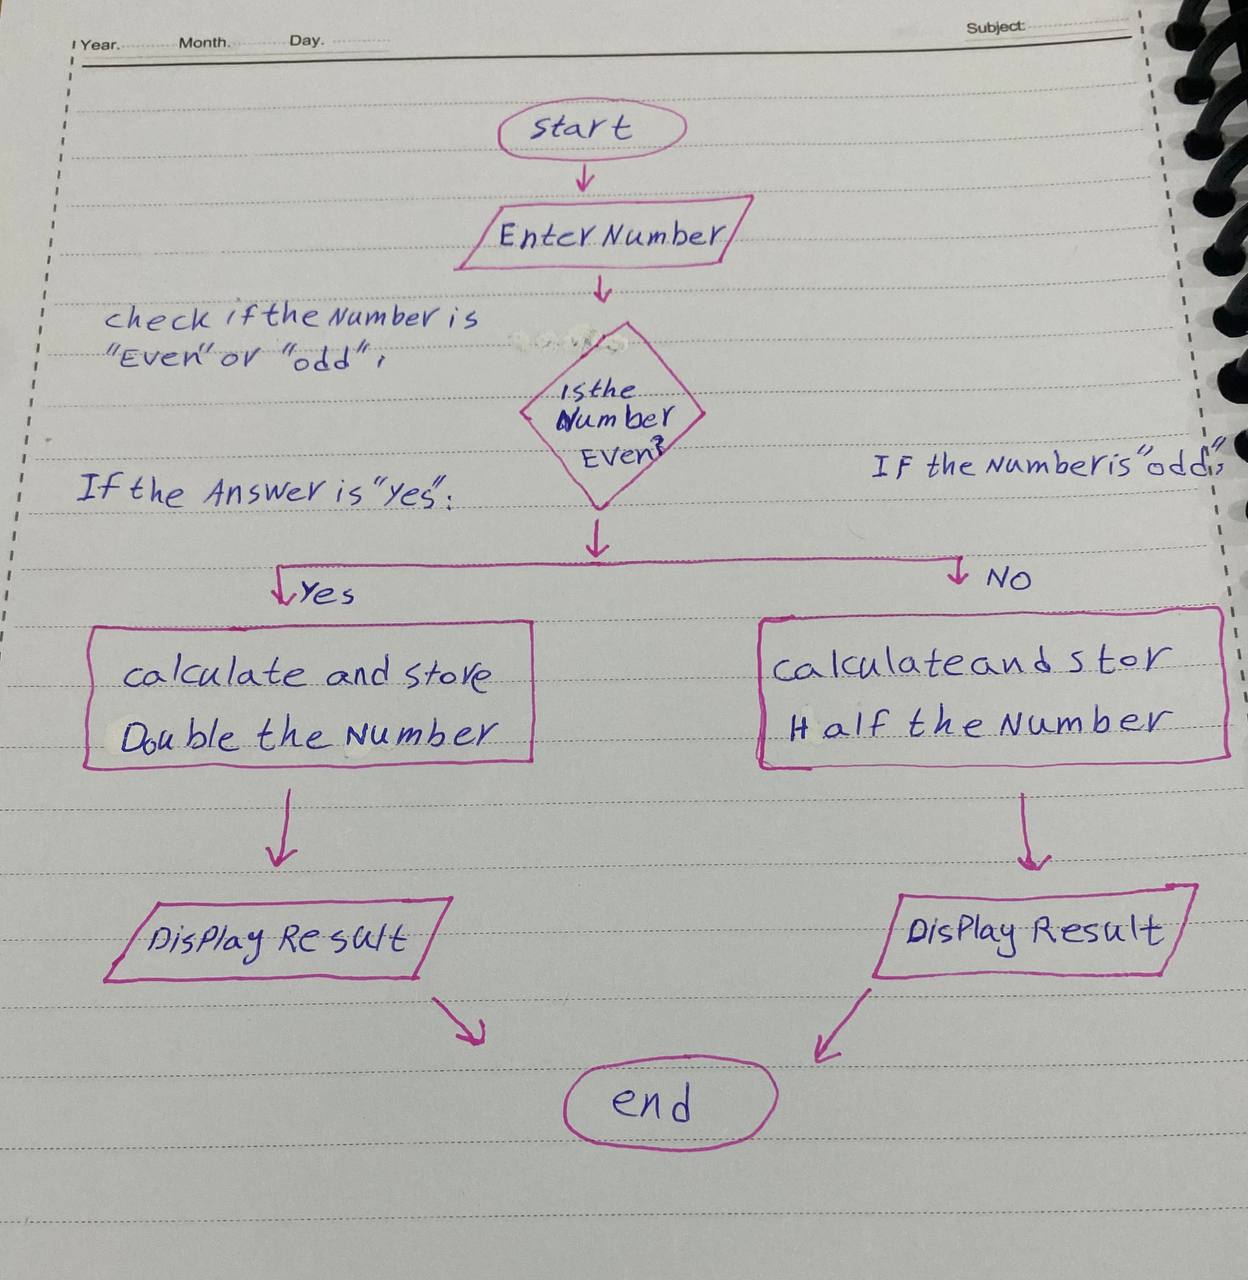 Year. Month. Day. Subject:
start
Enter Number
check if the Number is
"Even" or "odd",
Is the
Number
Even?
If the Answer is "yes":
IF the Number is "odd";
Yes
NO
calculate and store
Double the Number
calculate and stor
Half the Number
Display Result
Display Result
end